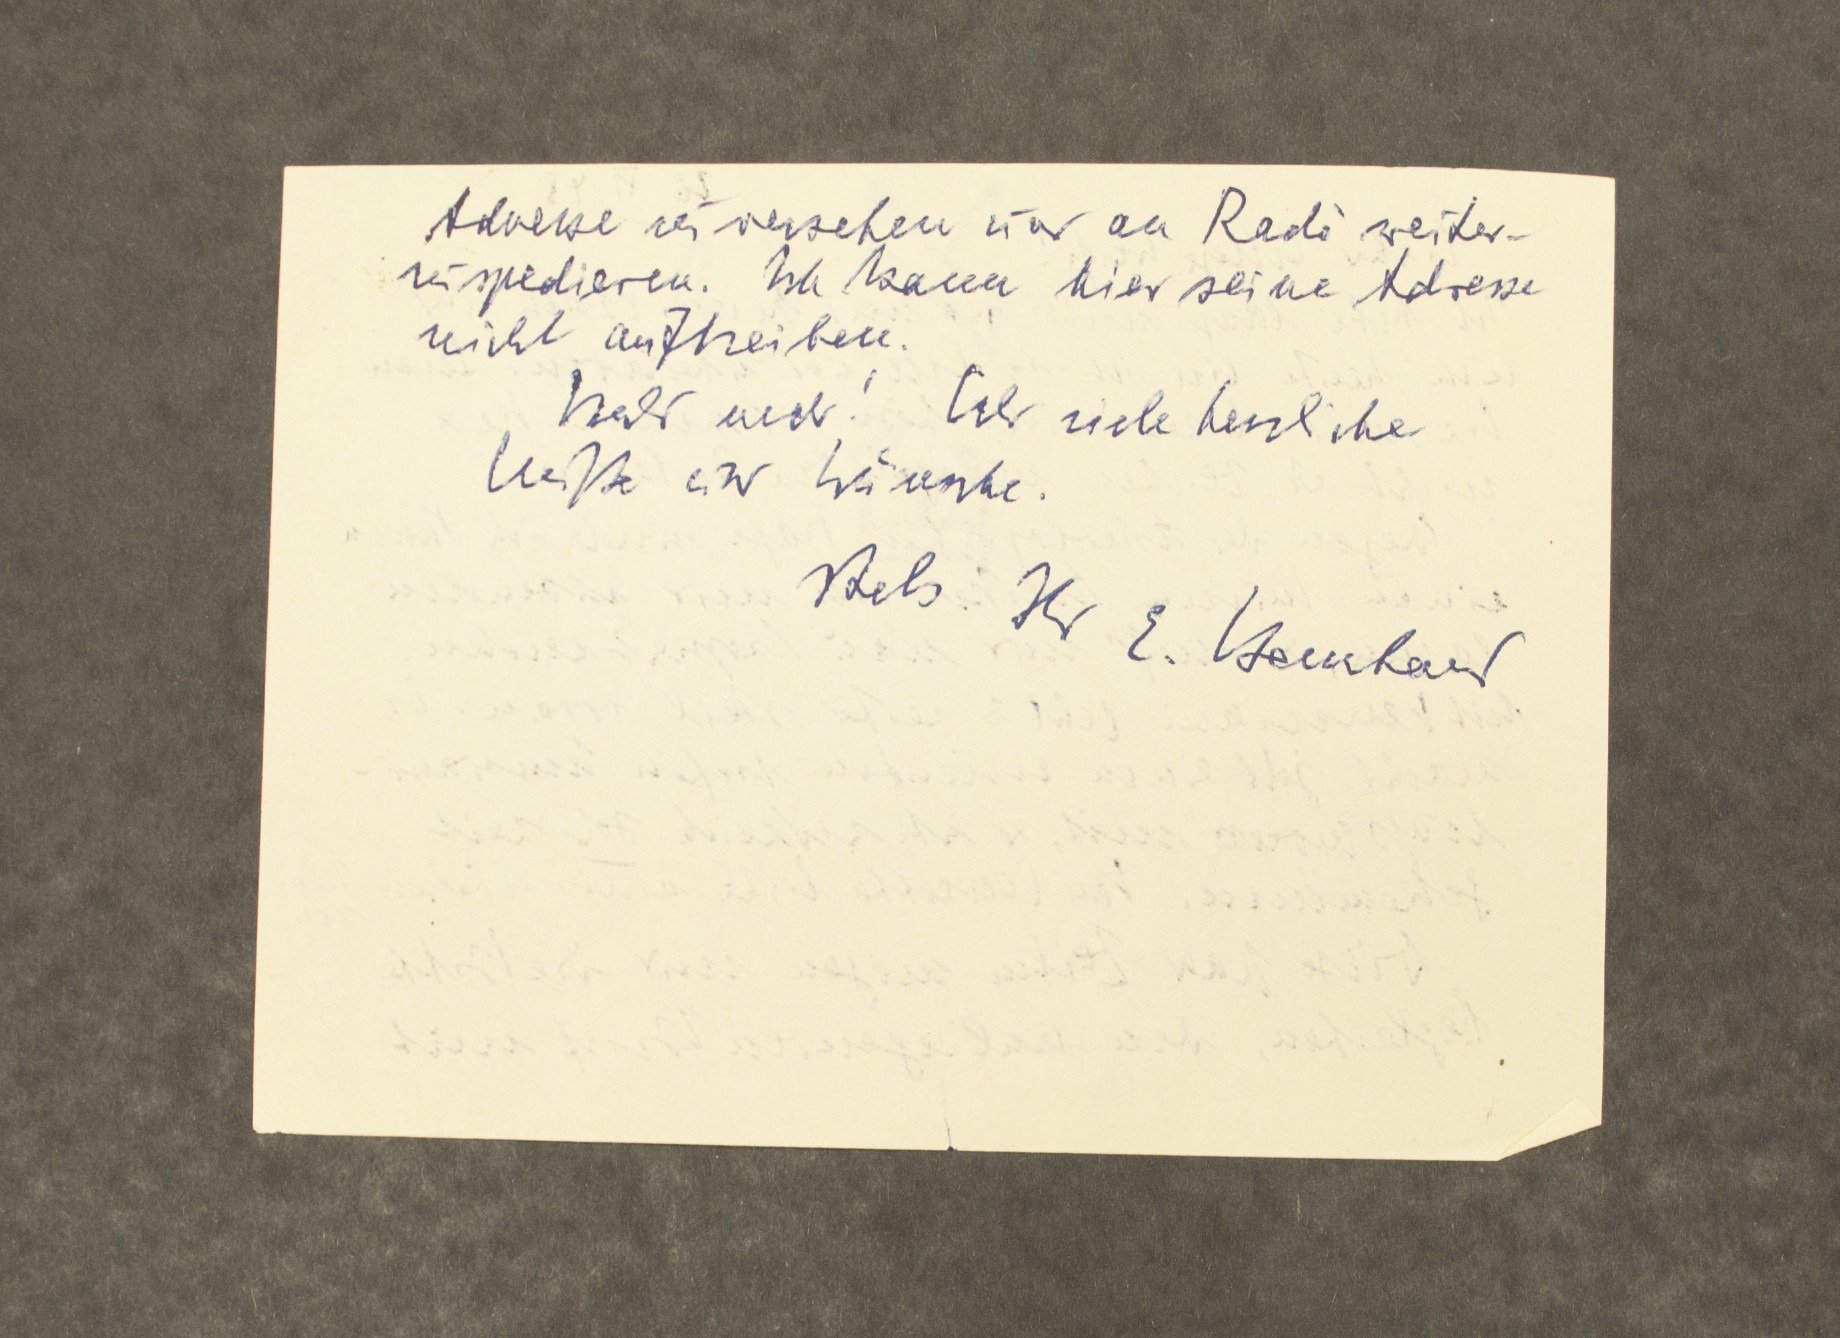 Adresse zu versehen und an Radi weiter-
zuspedieren. Ich kann hier seine Adresse
nicht auftreiben.
Bald mehr! Und viele herzliche
Grüße und Wünsche.
Stets Ihr E. Bernhard